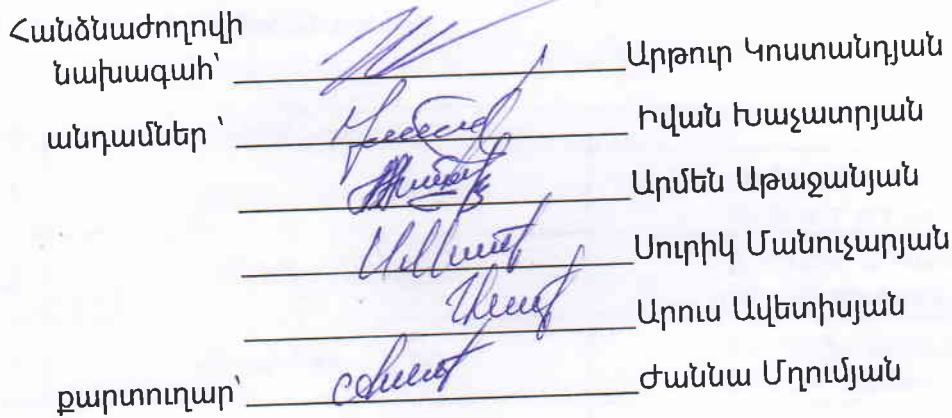 Հանձնաժողովի
նախագահ՝ Արթուր Կոստանդյան
անդամներ ՝ Իվան Խաչատրյան
Արմեն Աթաջանյան
Սուրիկ Մանուչարյան
Արուս Ավետիսյան
քարտուղար՝ Ժաննա Մղումյան